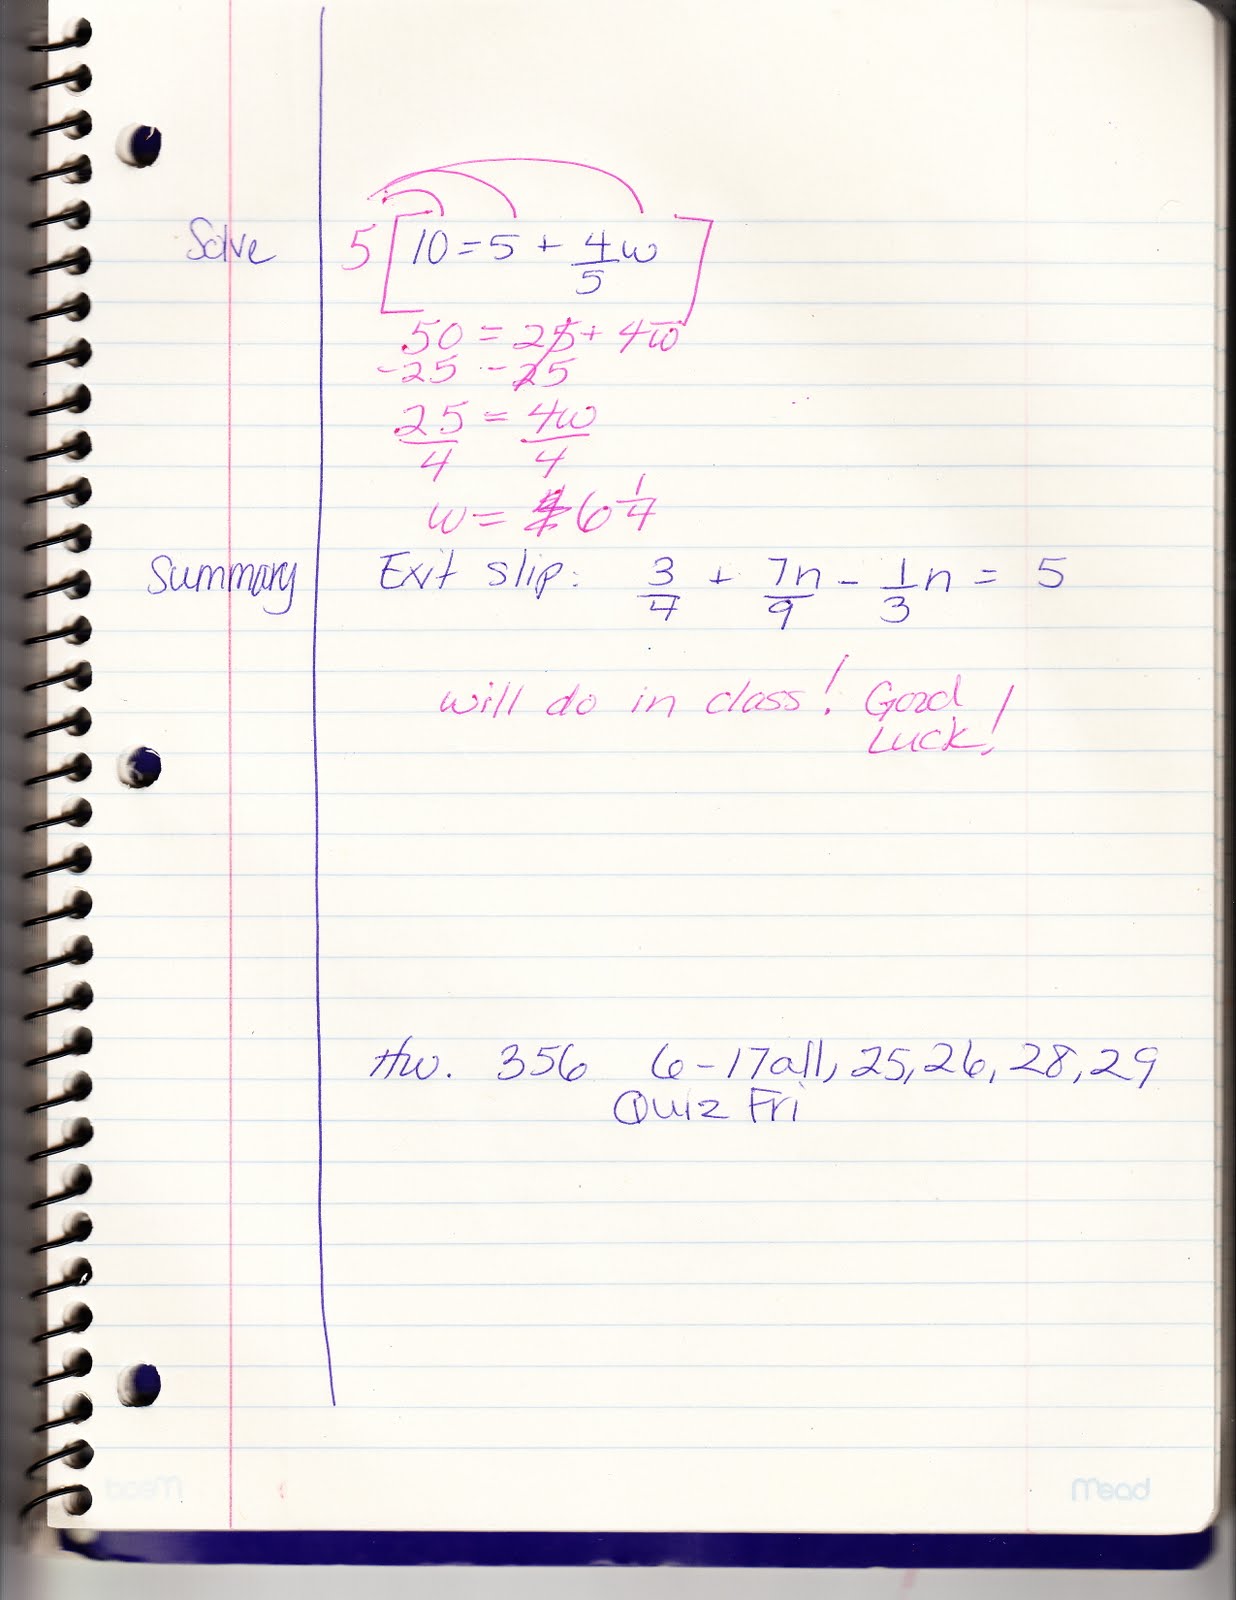 Solve 5[10 = 5 + 4/5 w]
50 = 25 + 4w
-25 -25
25/4 = 4w/4
w = 6 1/4
Summary Exit slip: 3/4 + 7n/9 - 1/3 n = 5
will do in class! Good
Luck!
Hw. 356 6-17all, 25, 26, 28, 29
Quiz Fri
Mead